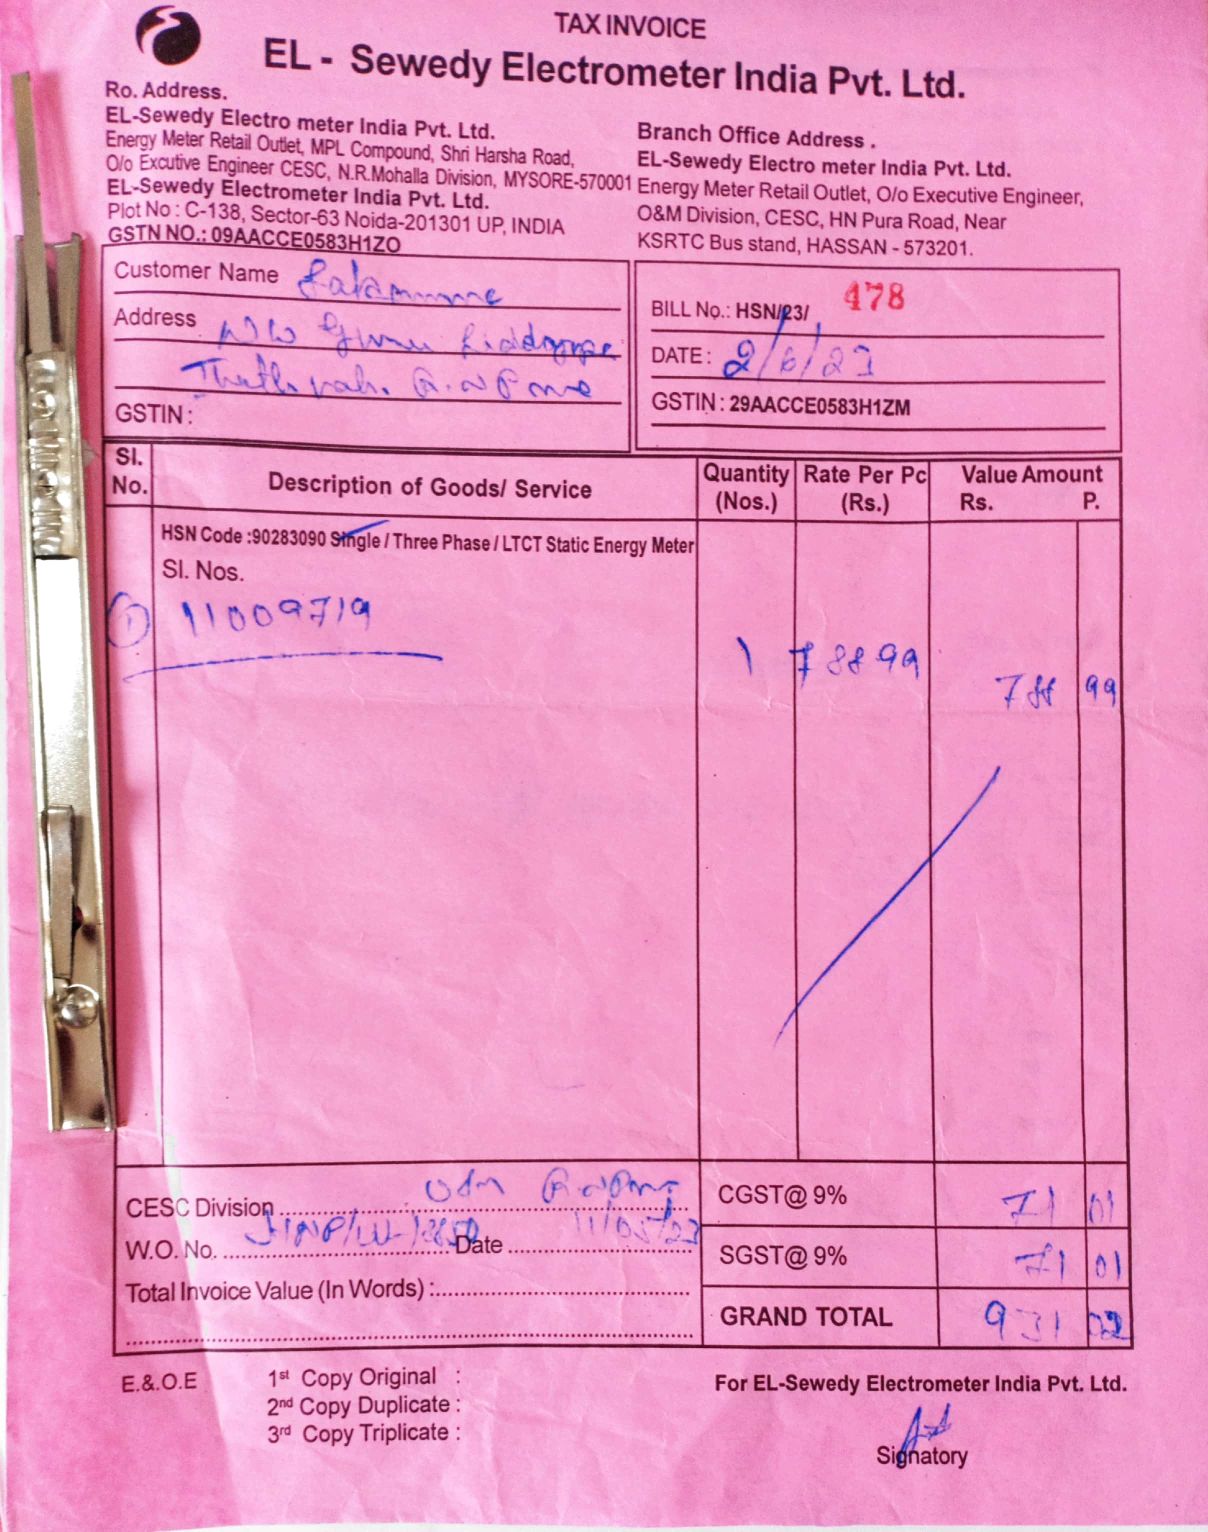 TAX INVOICE
EL - Sewedy Electrometer India Pvt. Ltd.
Ro. Address.
EL-Sewedy Electro meter India Pvt. Ltd.
Energy Meter Retail Outlet, MPL Compound, Shri Harsha Road,
O/o Excutive Engineer CESC, N.R.Mohalla Division, MYSORE-570001
EL-Sewedy Electrometer India Pvt. Ltd.
Plot No : C-138, Sector-63 Noida-201301 UP, INDIA
GSTN NO.: 09AACCE0583H1ZO
Branch Office Address .
EL-Sewedy Electro meter India Pvt. Ltd.
Energy Meter Retail Outlet, O/o Executive Engineer,
O&M Division, CESC, HN Pura Road, Near
KSRTC Bus stand, HASSAN - 573201.
Customer Name
Address W/o
GSTIN :
BILL No.: HSN/23/ 478
DATE : 2/6/23
GSTIN : 29AACCE0583H1ZM
Sl. No. Description of Goods/ Service Quantity (Nos.) Rate Per Pc (Rs.) Value Amount Rs. P.
HSN Code :90283090 Single / Three Phase / LTCT Static Energy Meter
Sl. Nos.
1 11009719
1 788 99 788 99
CESC Division
CGST@ 9% 71 01
W.O. No. Date 11/05/23
SGST@ 9% 71 01
Total Invoice Value (In Words) :
GRAND TOTAL 931 02
E.&.O.E
1st Copy Original :
2nd Copy Duplicate :
3rd Copy Triplicate :
For EL-Sewedy Electrometer India Pvt. Ltd.
Signatory